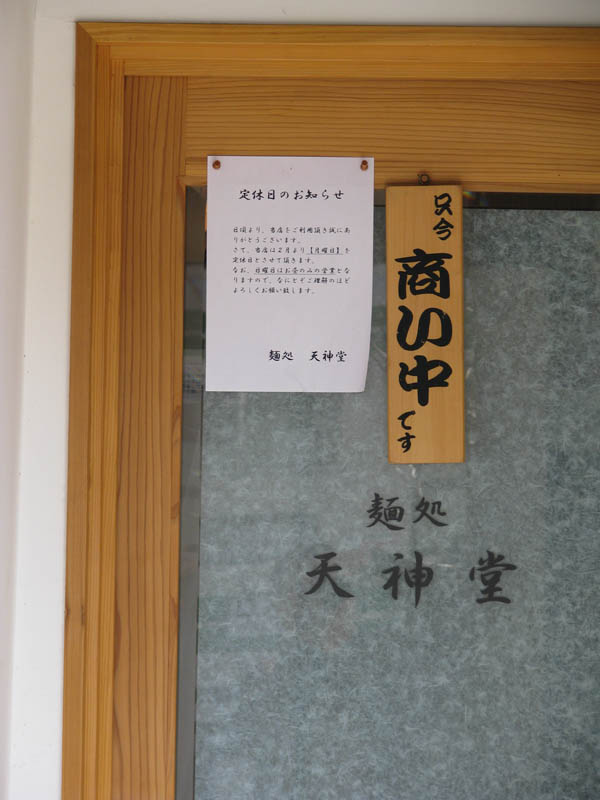 定休日のお知らせ
日頃より、当店をご利用頂き誠にあ
りがとうございます。
さて、当店は2月より【月曜日】を
定休日とさせて頂きます。
なお、日曜日はお昼のみの営業とな
りますので、なにとぞご理解のほど
よろしくお願い致します。
麺処 天神堂
只今
商い中
です
麺処
天神堂